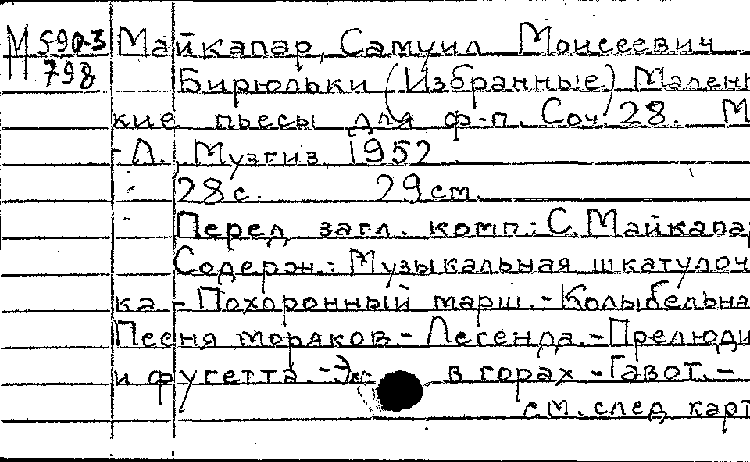 М 590-3 Майкапар, Самуил Моисеевич
798 Бирюльки (Избранные) Малень
кие пьесы для ф-п. Соч. 28. М
-Л., Музгиз, 1952.
28 с. 29 cm.
Перед загл. комп.: С. Майкапа
Содерж.: Музыкальная шкатулоч
ка - Похоронный марш. - Колыбельна
Песня моряков - Легенда. - Прелюди
и фугетта. - в горах - Гавот. -
см. след карт